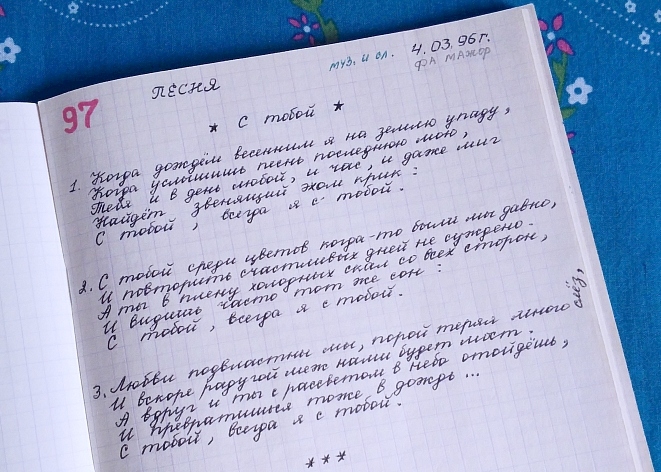 97
ПЕСНЯ
муз. и сл. 4.03.96 г.
ФА МАЖОР
★ С тобой ★
1. Когда дождём весенним я на землю упаду,
Когда услышишь песнь последнюю мою,
Тебя и в день любой, и час, и даже миг
Найдёт звенящий эхом крик:
С тобой, всегда я с тобой.
2. С тобой среди цветов когда-то были мы давно,
И повторить счастливых дней не суждено.
А ты в плену холодных скал со всех сторон,
И видишь часто тот же сон:
С тобой, всегда я с тобой.
3. Любви подвластны мы, порой теряя много слёз,
И вскоре радугой меж нами будет мост.
А вдруг и ты с рассветом в небо отойдёшь,
И превратишься тоже в дождь...
С тобой, всегда я с тобой.
***